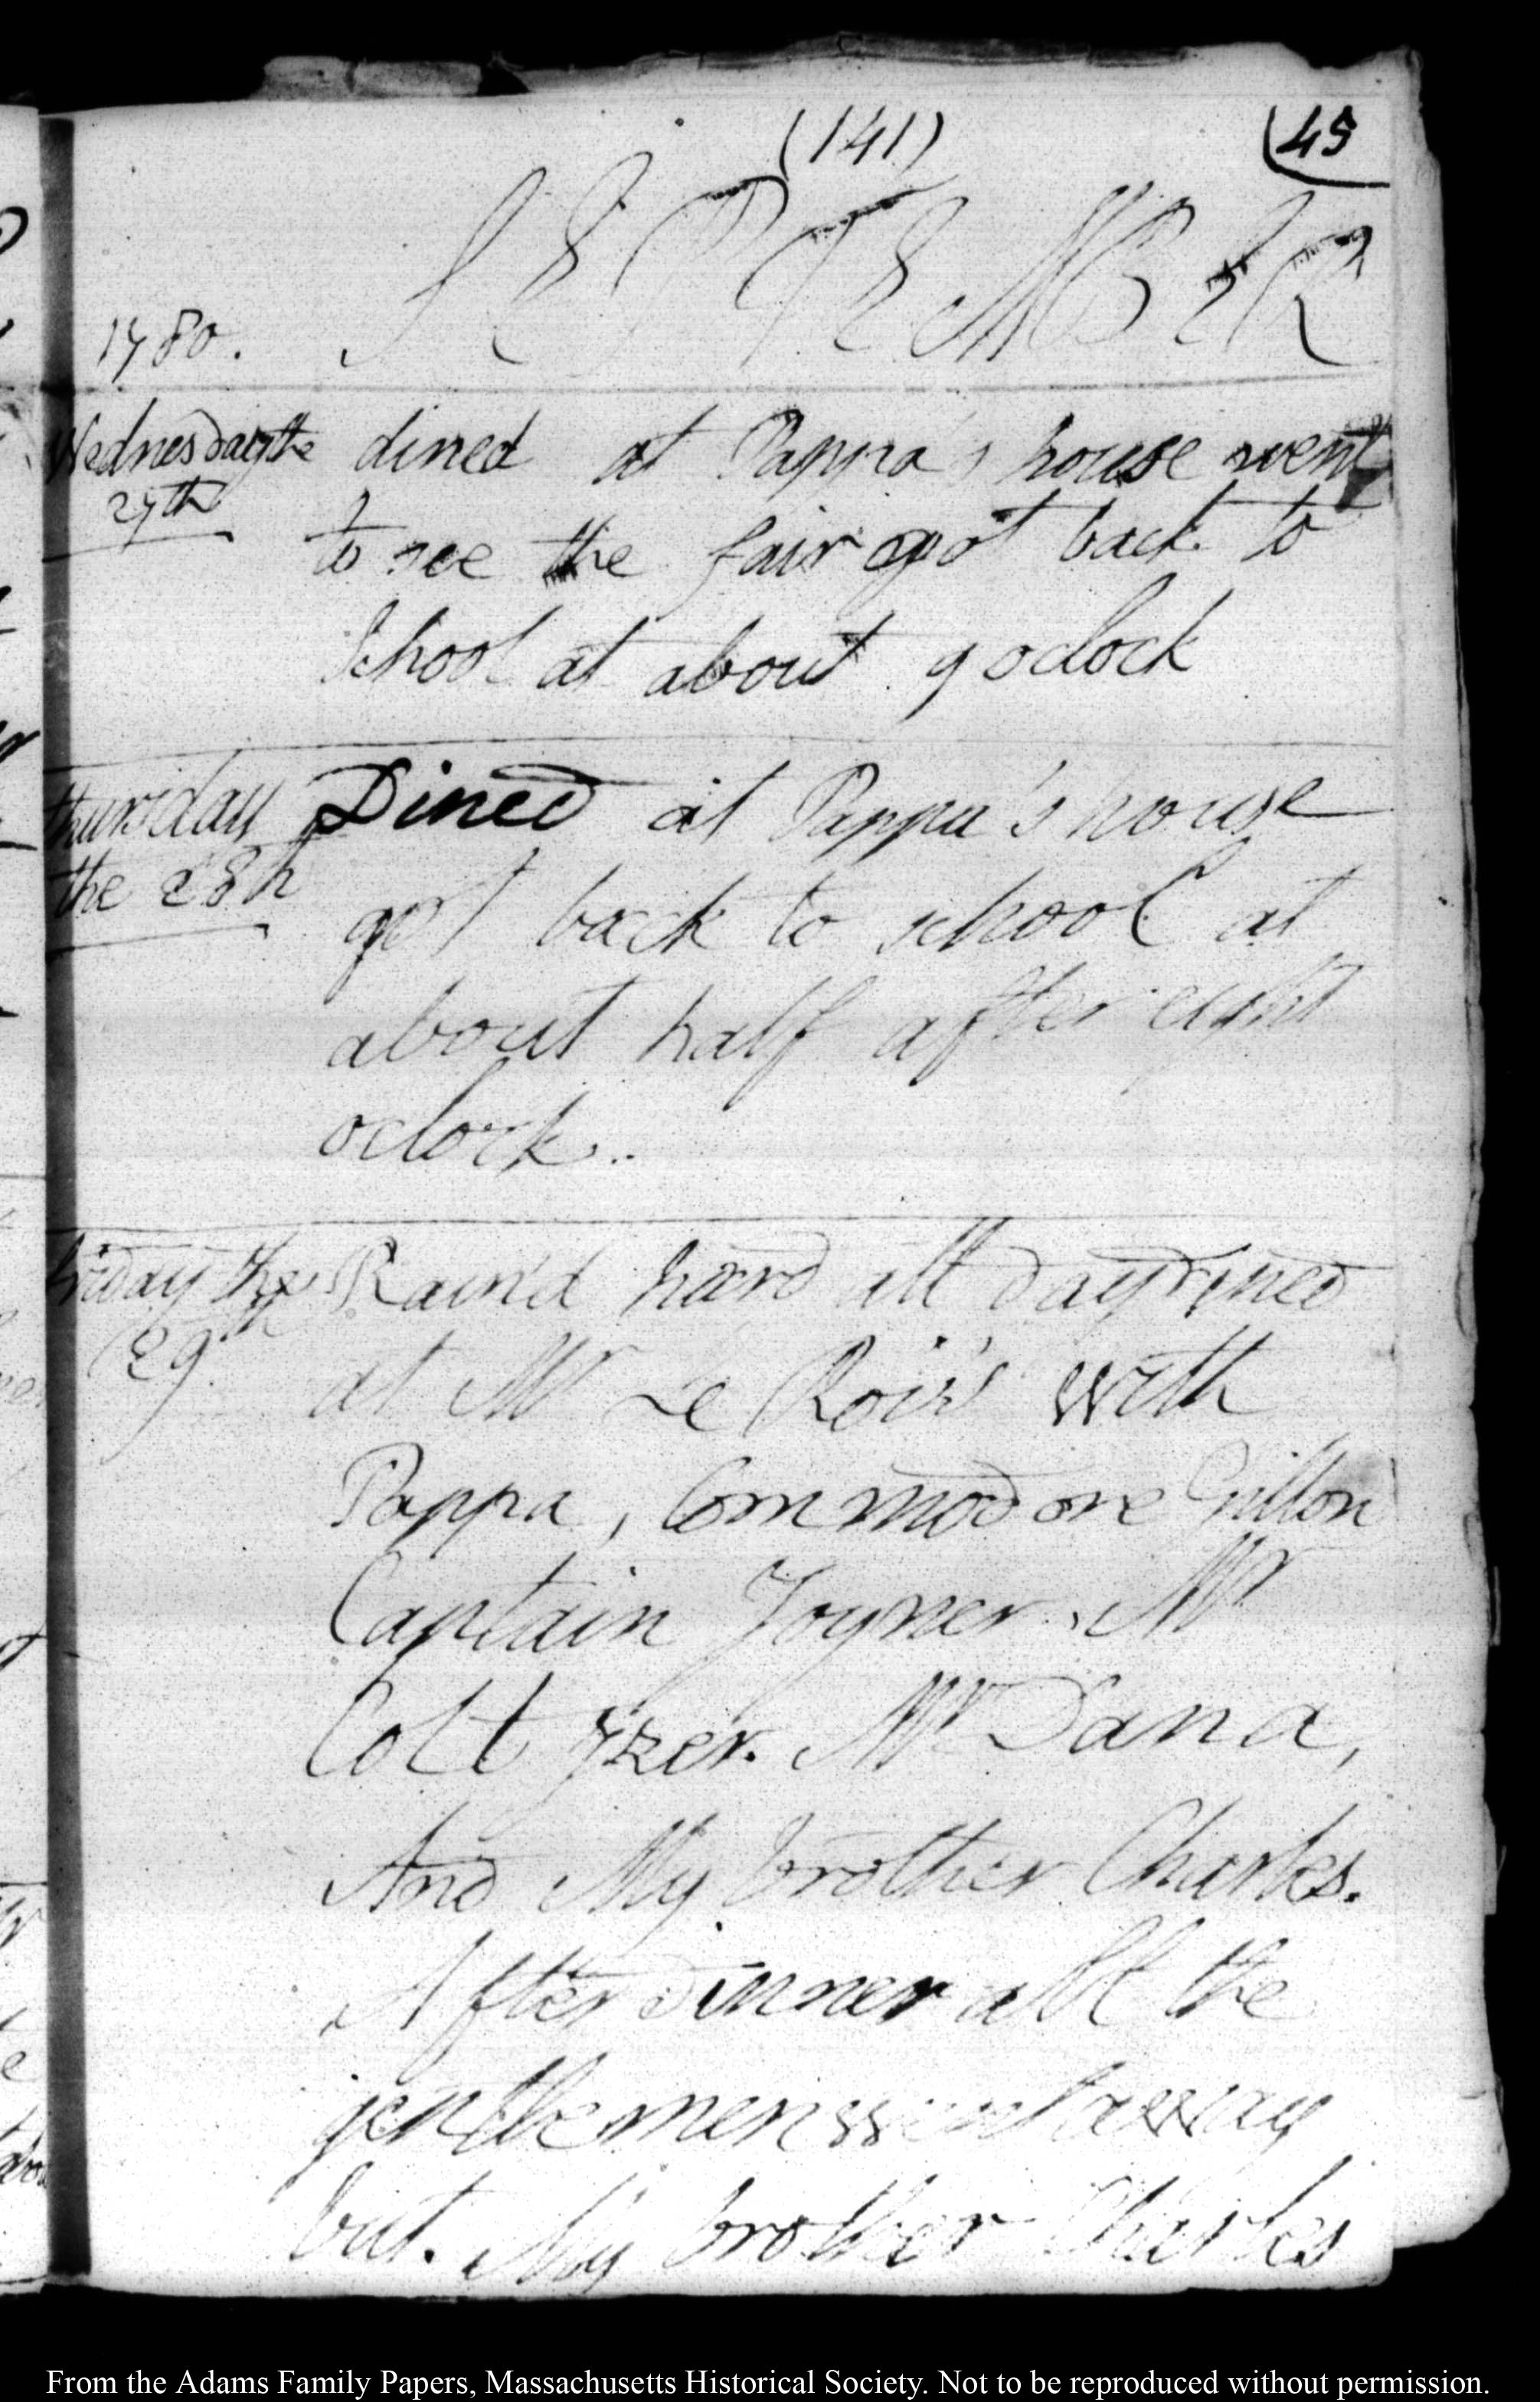 (141)
45
SEPTEMBER
1780.
Wednesday the
27th
dined at Pappa's house went
to see the fair got back to
School at about 9 oclock
thursday
the 28th
Dined at Pappa's house
got back to school at
about half after eight
oclock..
friday the
29th
Rain'd hard all day dined
at Mr Le Roi's with
Pappa, Commodore Gillon
Captain Joyner, Mr
Colt Yzer. Mr Dana,
And My brother Charles.
After dinner all the
gentlemen went away
but. My brother Charles
From the Adams Family Papers, Massachusetts Historical Society. Not to be reproduced without permission.